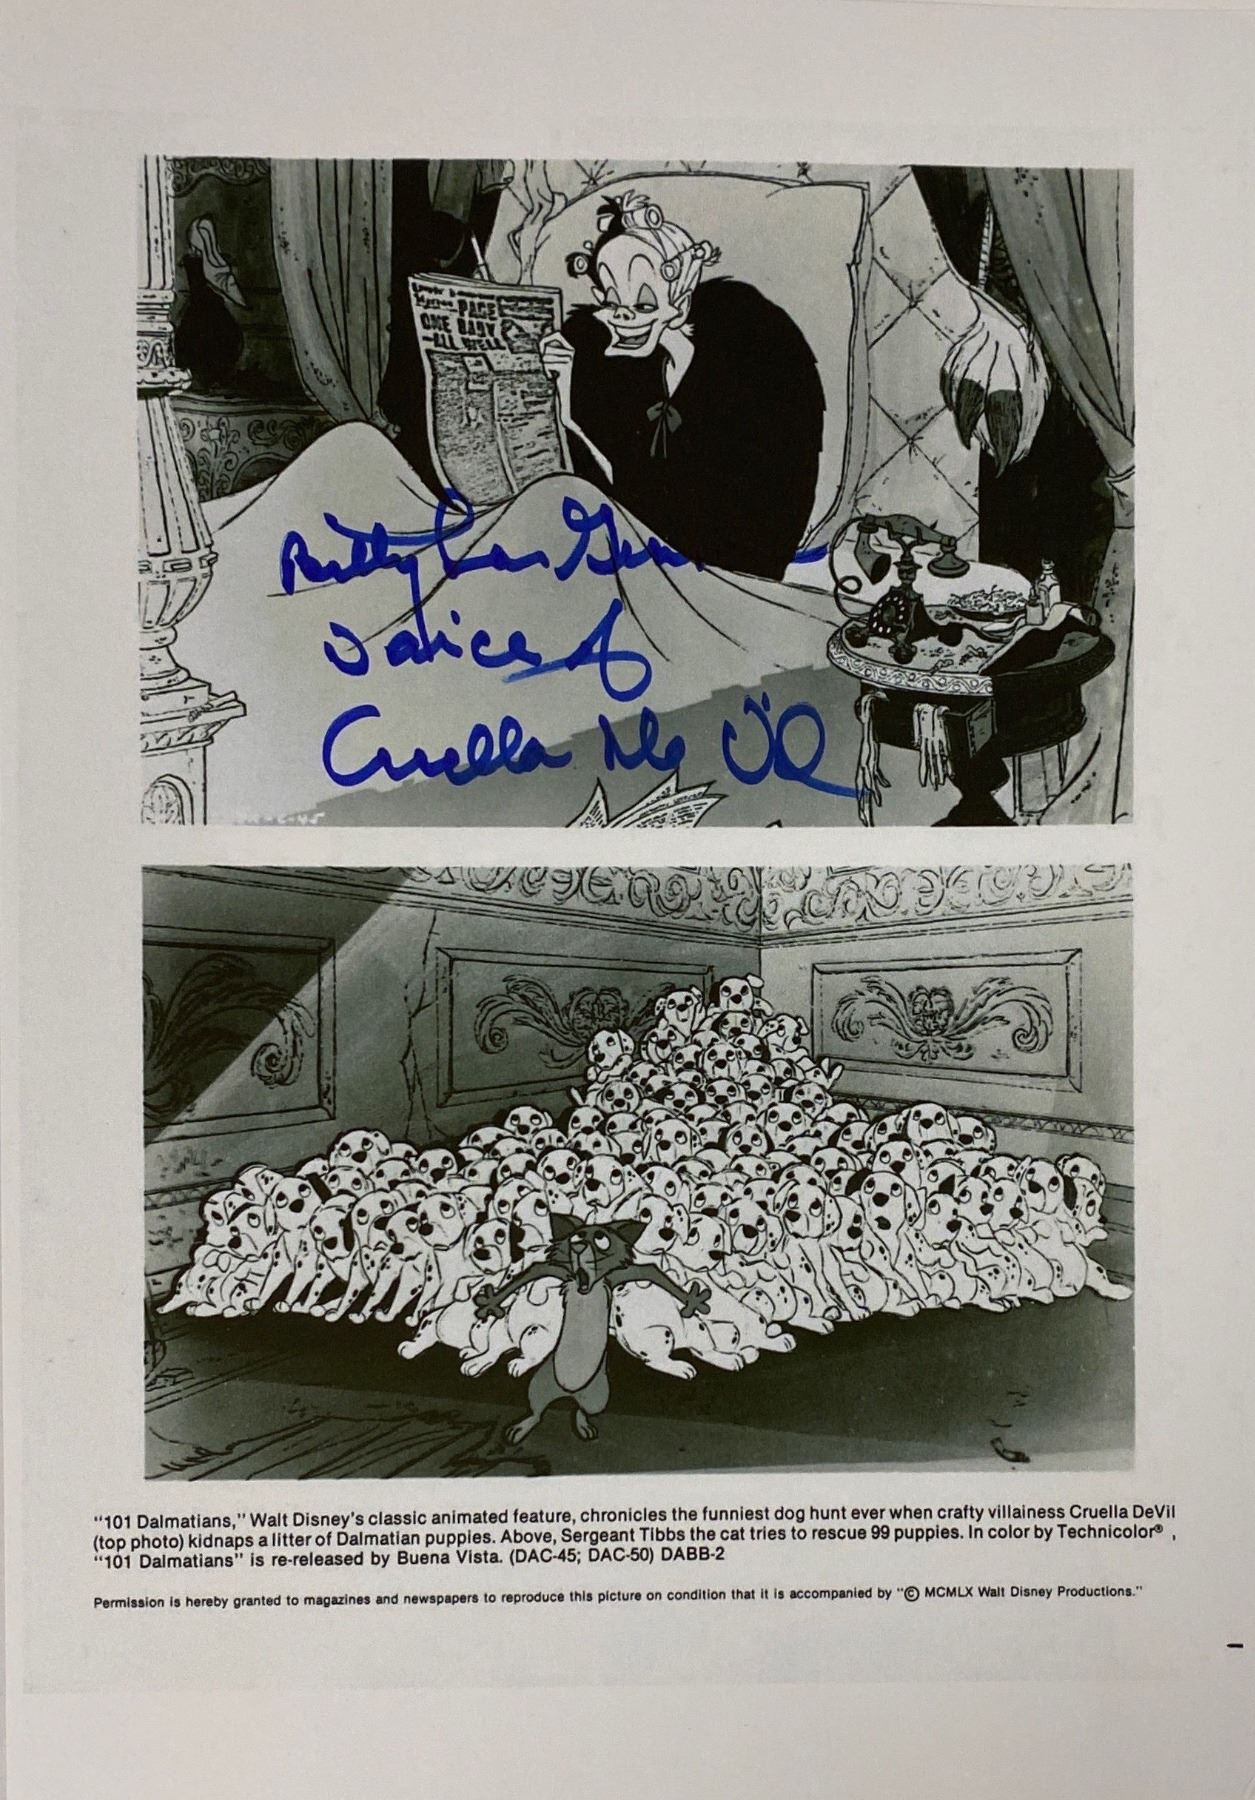 PAGE
ONE BABY
-ALL WELL
Betty Lou Gerson
Voice of
Cruella De Vil
"101 Dalmatians," Walt Disney's classic animated feature, chronicles the funniest dog hunt ever when crafty villainess Cruella DeVil
(top photo) kidnaps a litter of Dalmatian puppies. Above, Sergeant Tibbs the cat tries to rescue 99 puppies. In color by Technicolor® ,
"101 Dalmatians" is re-released by Buena Vista. (DAC-45; DAC-50) DABB-2
Permission is hereby granted to magazines and newspapers to reproduce this picture on condition that it is accompanied by "© MCMLX Walt Disney Productions."